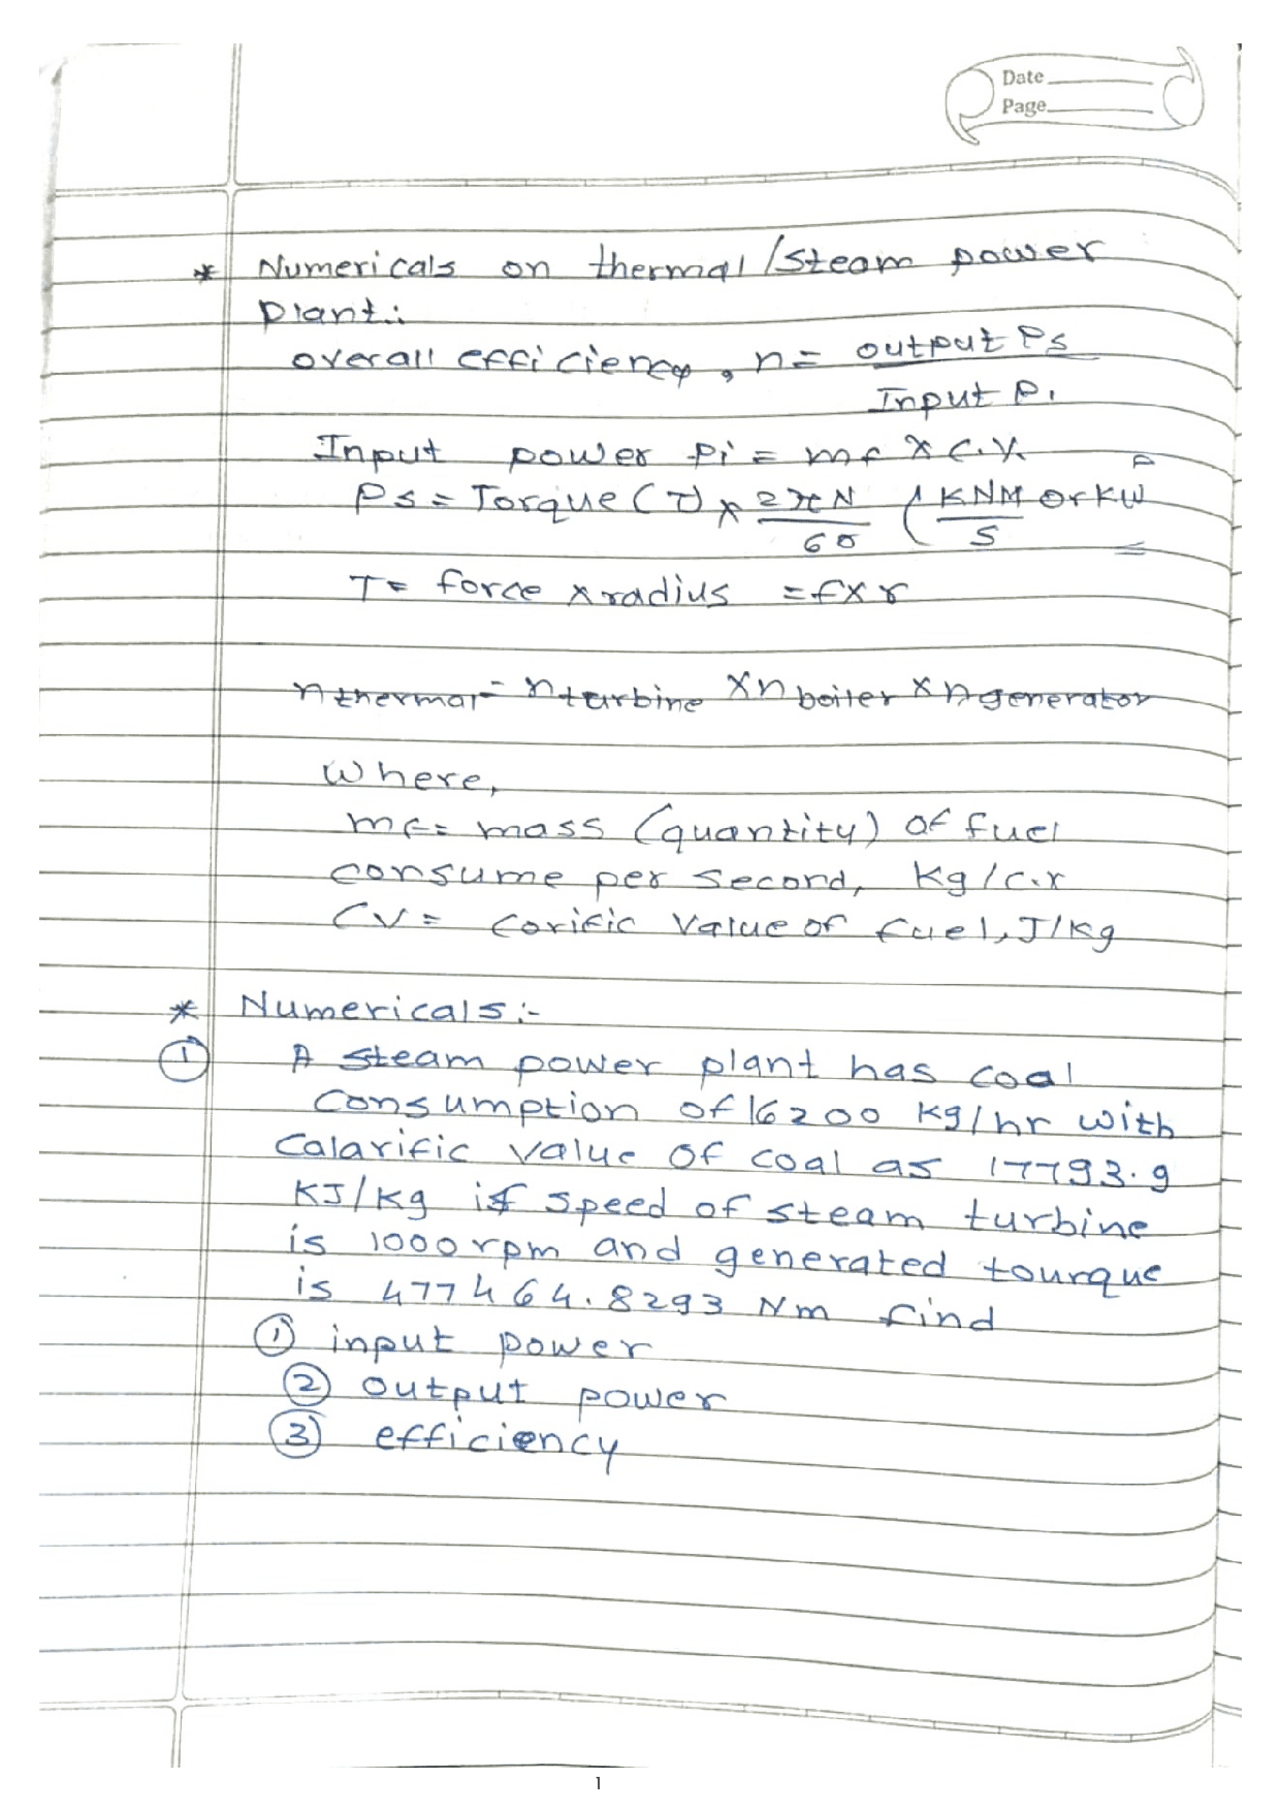 Date
Page
* Numericals on thermal/steam power
plant:
overall efficiency, n = output Ps
Input Pi
Input power Pi = mf x C.V.
Ps = Torque (T) x 2πN / 60 (KNM / S or KW
T = force x radius = f x r
n thermal = n turbine x n boiler x n generator
Where,
mf = mass (quantity) of fuel
consume per second, Kg/c.r
CV = Corific Value of fuel, J/Kg
* Numericals :-
① A steam power plant has coal
Consumption of 16200 kg/hr with
Calarific value of coal as 17793.9
KJ/Kg if speed of steam turbine
is 1000 rpm and generated tourque
is 477464.8293 Nm find
① input power
② output power
③ efficiency
1